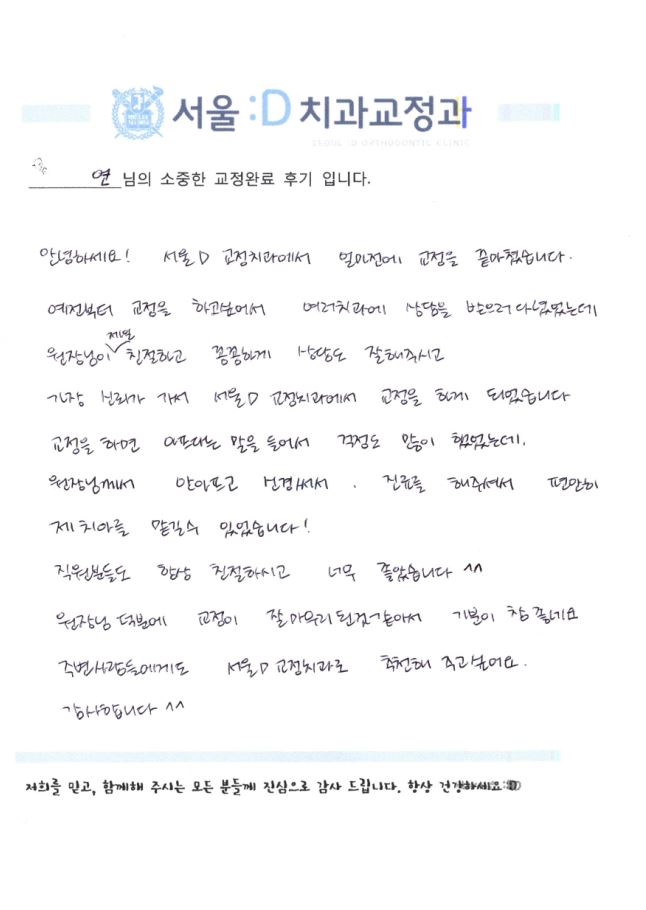 서울 :D 치과교정과
SEOUL :D ORTHODONTIC CLINIC
연 님의 소중한 교정완료 후기 입니다.
안녕하세요! 서울D 교정치과에서 얼마전에 교정을 끝마쳤습니다.
예전부터 교정을 하고싶어서 여러치과에 상담을 받으러 다녔었는데
원장님이 제일 친절하고 꼼꼼하게 상담도 잘해주시고
가장 신뢰가 가서 서울D 교정치과에서 교정을 하게 되었습니다
교정을 하면 아프다는 말을 들어서 걱정도 많이 했었는데,
원장님께서 안아프고 신경써서 . 진료를 해주셔서 편안히
제 치아를 맡길수 있었습니다!
직원분들도 항상 친절하시고 너무 좋았습니다 ^^
원장님 덕분에 교정이 잘 마무리 된것같아서 기분이 참 좋네요
주변사람들에게도 서울D 교정치과로 추천해 주고싶어요.
감사합니다 ^^
저희를 믿고, 함께해 주시는 모든 분들께 진심으로 감사 드립니다. 항상 건강하세요:D